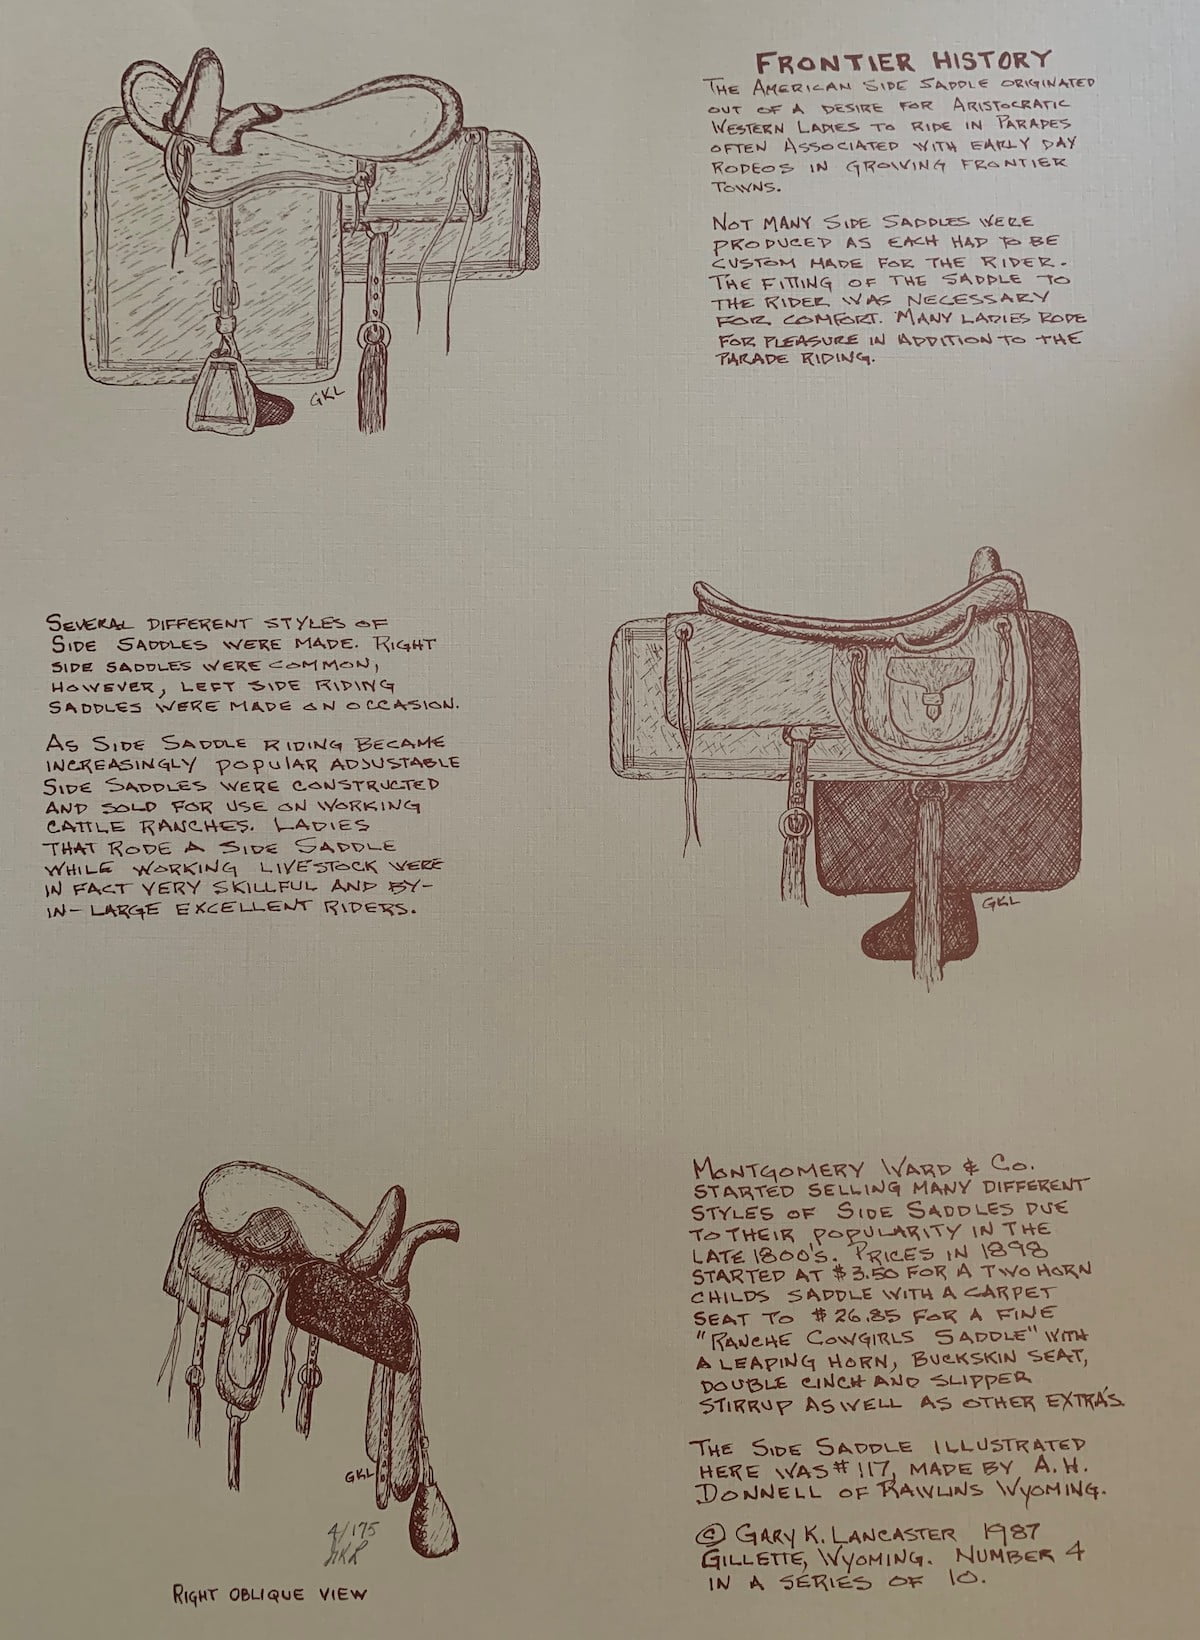 FRONTIER HISTORY
THE AMERICAN SIDE SADDLE ORIGINATED
OUT OF A DESIRE FOR ARISTOCRATIC
WESTERN LADIES TO RIDE IN PARADES
OFTEN ASSOCIATED WITH EARLY DAY
RODEOS IN GROWING FRONTIER
TOWNS.
NOT MANY SIDE SADDLES WERE
PRODUCED AS EACH HAD TO BE
CUSTOM MADE FOR THE RIDER.
THE FITTING OF THE SADDLE TO
THE RIDER WAS NECESSARY
FOR COMFORT. MANY LADIES RODE
FOR PLEASURE IN ADDITION TO THE
PARADE RIDING.
GKL
SEVERAL DIFFERENT STYLES OF
SIDE SADDLES WERE MADE. RIGHT
SIDE SADDLES WERE COMMON,
HOWEVER, LEFT SIDE RIDING
SADDLES WERE MADE ON OCCASION.
AS SIDE SADDLE RIDING BECAME
INCREASINGLY POPULAR ADJUSTABLE
SIDE SADDLES WERE CONSTRUCTED
AND SOLD FOR USE ON WORKING
CATTLE RANCHES. LADIES
THAT RODE A SIDE SADDLE
WHILE WORKING LIVESTOCK WERE
IN FACT VERY SKILLFUL AND BY-
IN-LARGE EXCELLENT RIDERS.
GKL
MONTGOMERY WARD & CO.
STARTED SELLING MANY DIFFERENT
STYLES OF SIDE SADDLES DUE
TO THEIR POPULARITY IN THE
LATE 1800'S. PRICES IN 1898
STARTED AT $3.50 FOR A TWO HORN
CHILDS SADDLE WITH A CARPET
SEAT TO $26.85 FOR A FINE
"RANCHE COWGIRLS SADDLE" WITH
A LEAPING HORN, BUCKSKIN SEAT,
DOUBLE CINCH AND SLIPPER
STIRRUP AS WELL AS OTHER EXTRA'S.
THE SIDE SADDLE ILLUSTRATED
HERE WAS # 117, MADE BY A. H.
DONNELL OF RAWLINS WYOMING.
© GARY K. LANCASTER 1987
GILLETTE, WYOMING. NUMBER 4
IN A SERIES OF 10.
GKL
4/175
GKL
RIGHT OBLIQUE VIEW